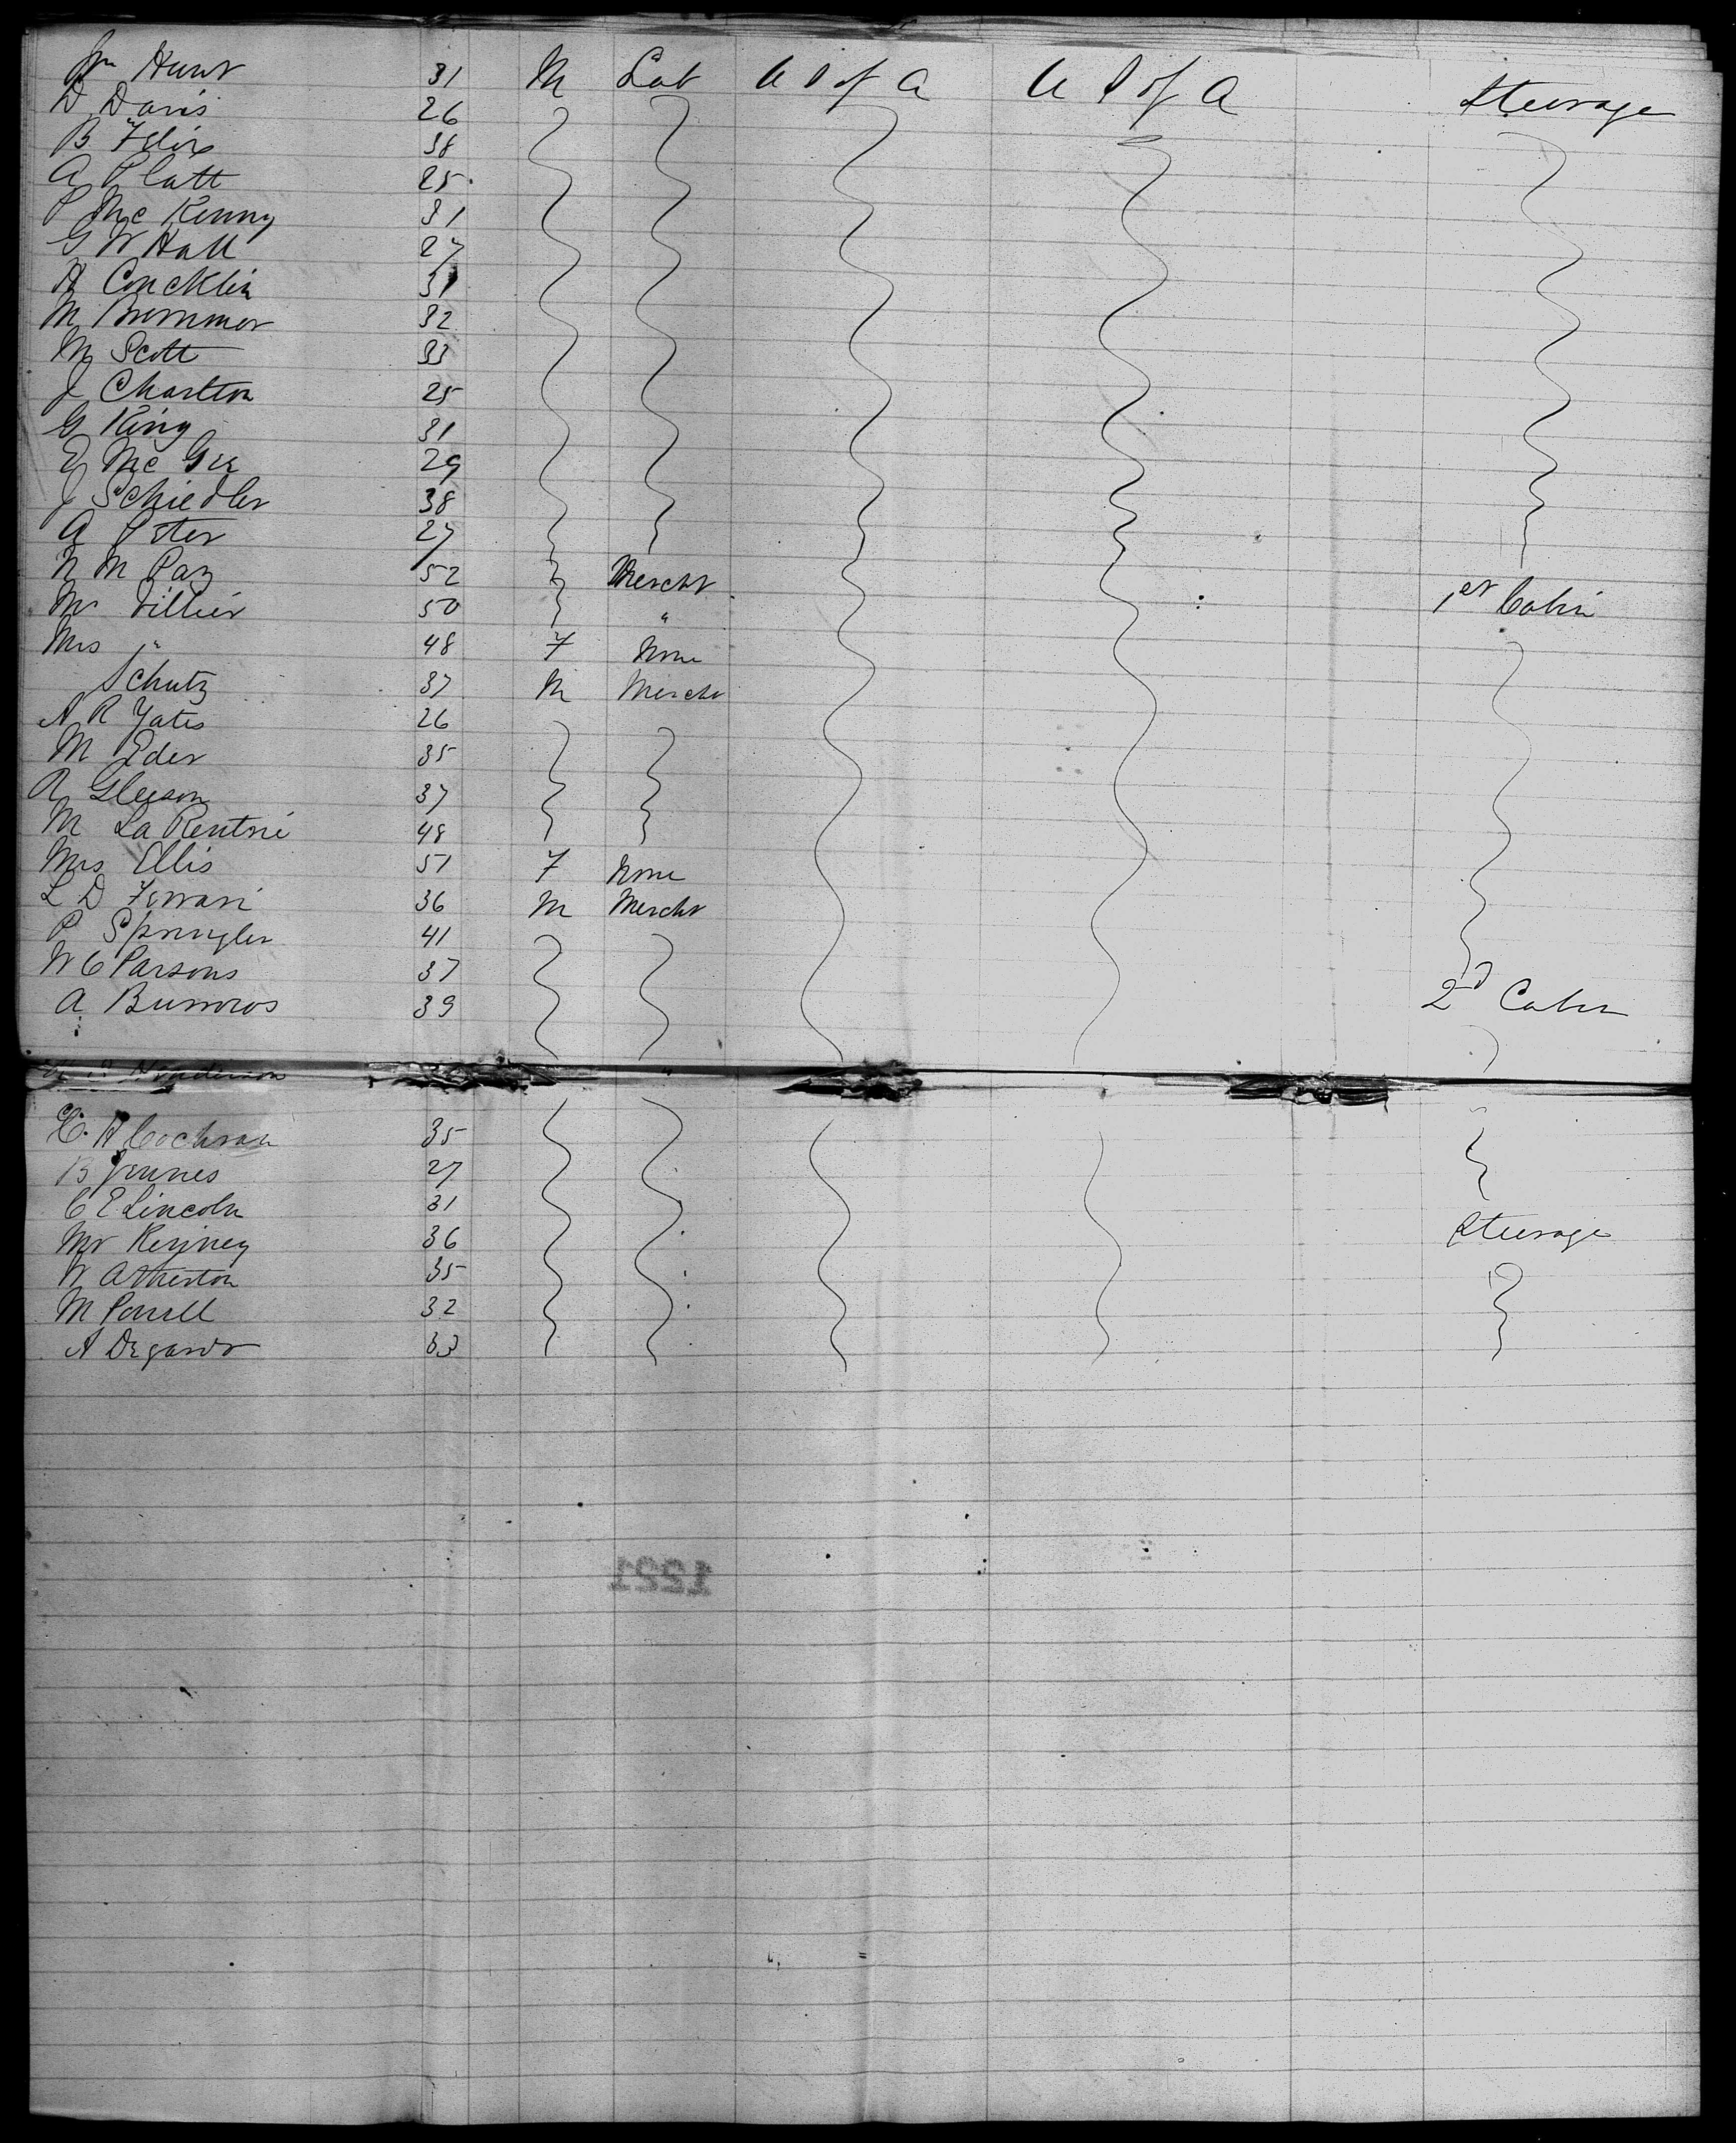 Wm Hunt 31 M Lab U S of A U S of A Steerage
D Davis 26
B Felix 38
A Platt 25
P McKenny 31
G W Hall 27
H Concklin 31
M Brommer 32
M Scott 33
J Charlton 25
G King 31
E McGee 29
J Schiedler 38
A Peter 27
N M Pay 52 Mercht
Mr Villier 50 " 1st Cabin
Mrs " 48 F None
Schutz 37 M Mercht
A R Yates 26
M Eder 35
R Gleeson 37
M La Rentrie 48
Mrs Ellis 51 F None
L D Ferrari 36 M Mercht
P Springler 41
W C Parsons 37
A Burrows 39 2d Cabin
Henderson
C. H Cochran 35
B Jennes 27
C E Lincoln 31
Mr Kenney 36 Steerage
W Atherton 35
M Powell 32
A Degardr 33
1221